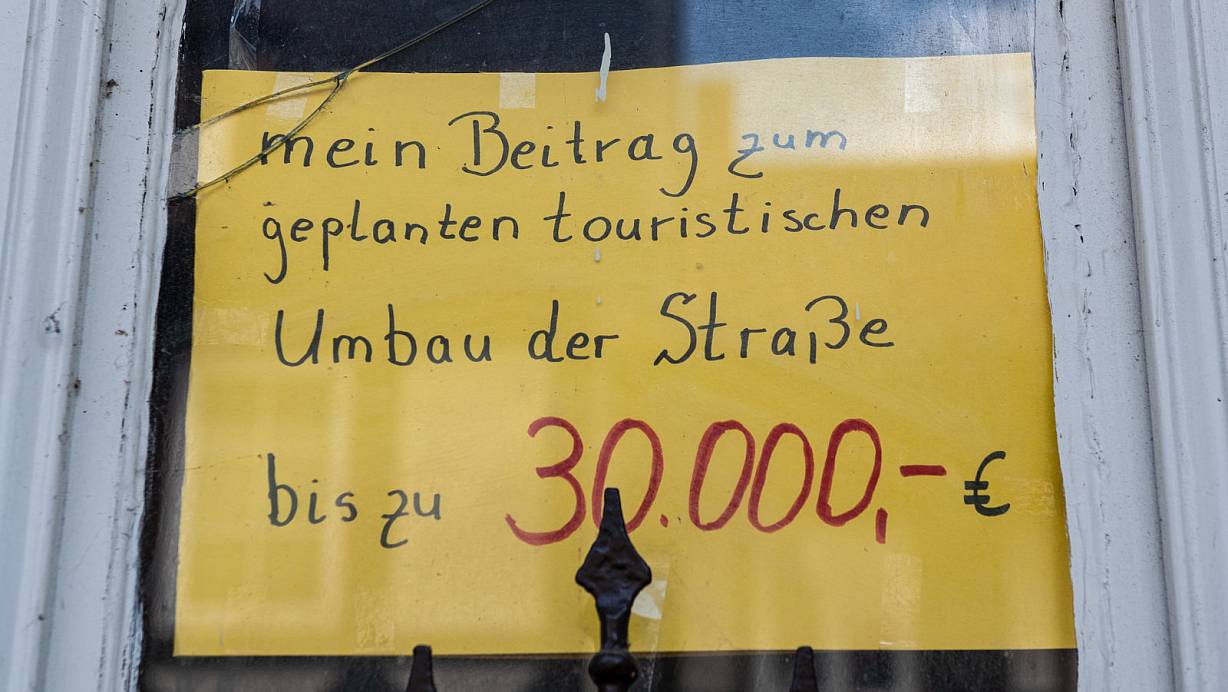 mein Beitrag zum
geplanten touristischen
Umbau der Straße
bis zu 30.000,- €